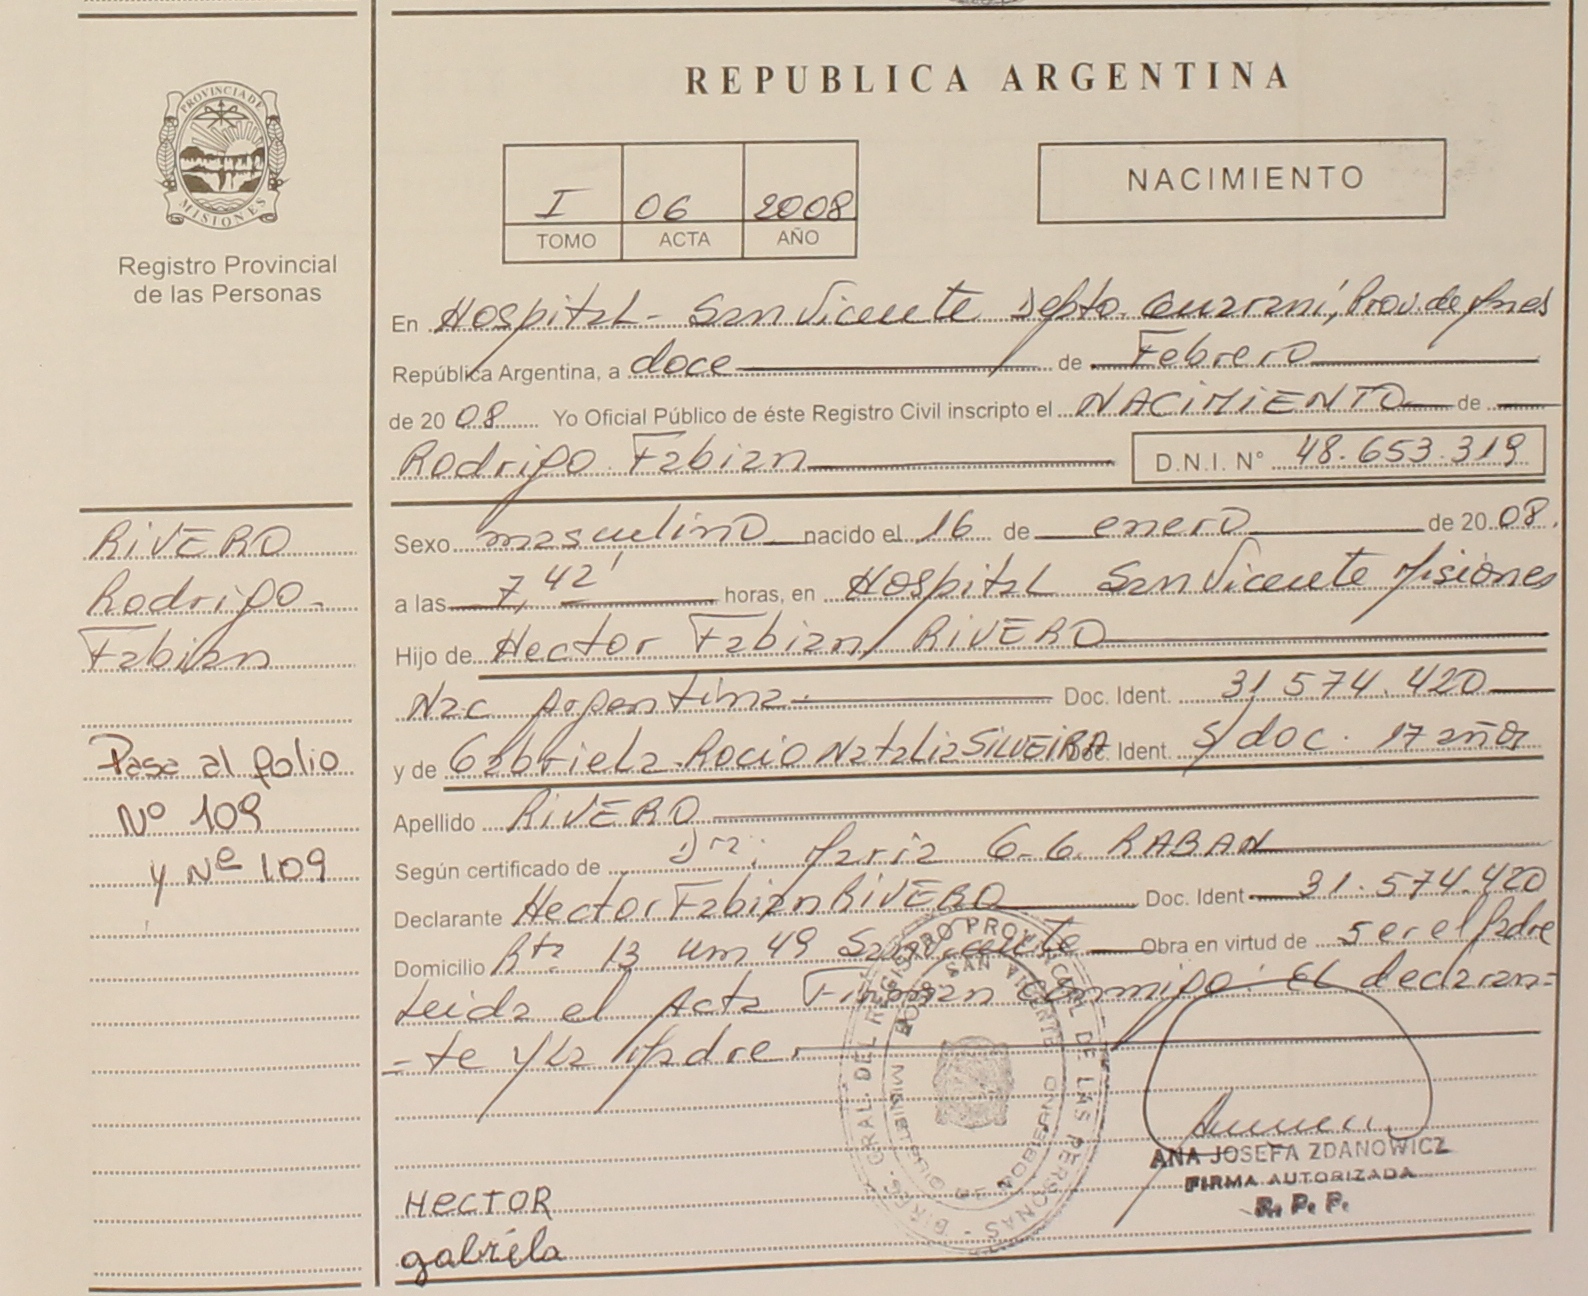 REPUBLICA ARGENTINA
PROVINCIA DE MISIONES
Registro Provincial
de las Personas
I 06 2008
TOMO ACTA AÑO
NACIMIENTO
En Hospital - San Vicente Depto. Guarani, Prov. de Mnes
República Argentina, a doce de Febrero
de 2008. Yo Oficial Público de éste Registro Civil inscripto el NACIMIENTO de
Rodrigo Fabian D.N.I. N° 48.653.319
Sexo masculino nacido el 16 de enero de 2008.
a las 7,42' horas, en Hospital San Vicente Misiones
Hijo de Hector Fabian RIVERO
Nac Argentina. Doc. Ident. 31 574.420
y de Gabriela Rocio Natalia SILVEIRA Doc. Ident. S/doc. 17 años
Apellido RIVERO
Según certificado de Dra. Maria G.G. RABAN
Declarante Hector Fabian RIVERO Doc. Ident 31.574.420
Domicilio Rta 13 49 San Vicente Obra en virtud de ser el Padre
Leida el Acta Firman conmigo: El declaran=
=te y la Madre.
HECTOR
gabriela
RIVERO
Rodrigo-
Fabian
Pasa al folio
Nº 109
y Nº 109
DIREC. GRAL. DEL REGISTRO PROVINCIAL DE LAS PERSONAS
MINISTERIO DE GOBIERNO
SAN VICENTE
ANA JOSEFA ZDANOWICZ
FIRMA AUTORIZADA
R. P. P.